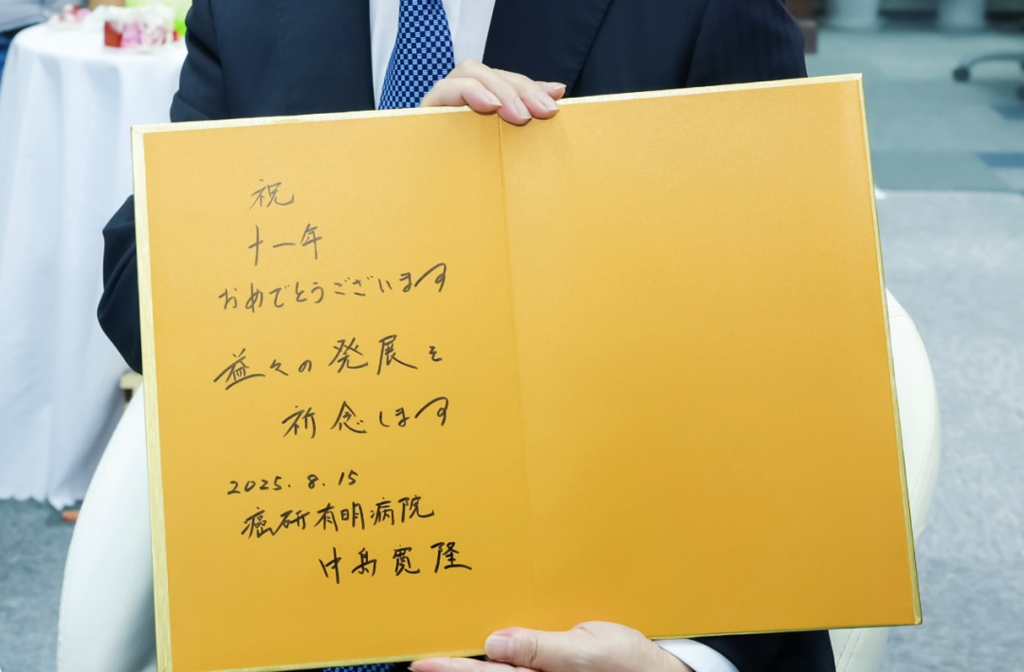 祝
十一年
おめでとうございます
益々の発展を
祈念します
2025.8.15
癌研有明病院
中島寛隆